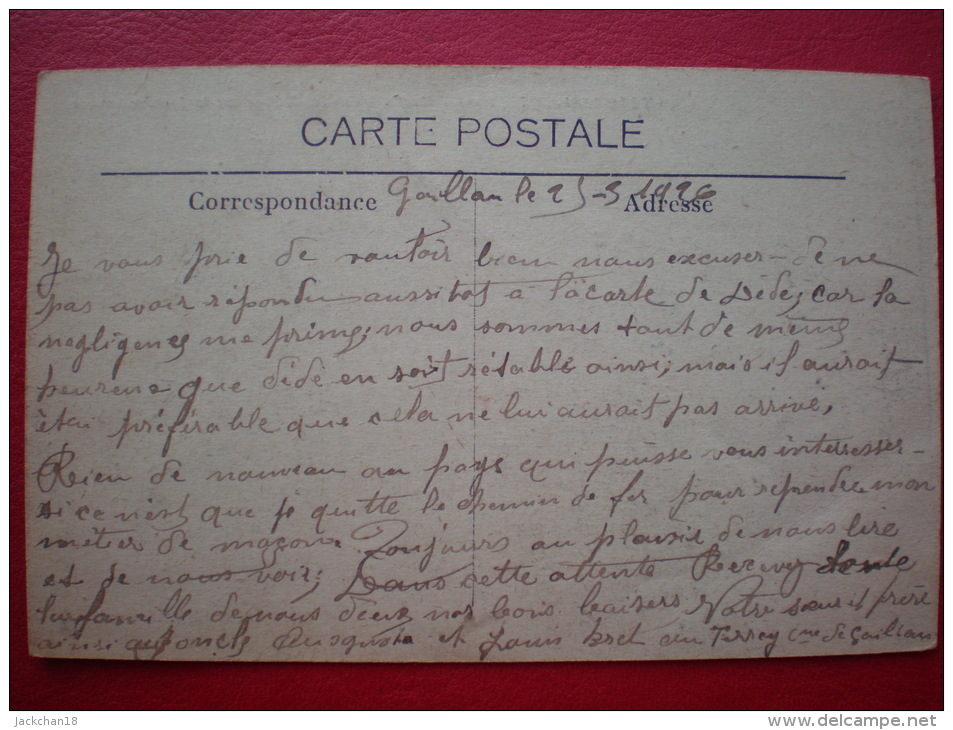 CARTE POSTALE
Correspondance Gaillan le 25-3 1926 Adresse
Je vous prie de vouloir bien nous excuser de ne
pas avoir répondu aussitot a la carte de Dédé, car la
negligence me prime; nous sommes tout de même
heureux que dédé en soit rétabli ainsi; mais il aurait
étai préférable que cela ne lui aurait pas arrivé,
Rien de nouveau au pays qui puisse vous interresser
si ce n'est que je quitte le chemin de fer pour reprendre mon
métier de maçon. Toujours au plaisir de nous lire
et de nous voir; Dans cette attente Recevez toute
la famille de nous deux nos bons baisers Votre soeur et frère
ainsi qu'oncle et Louis au Terrey Cne de Gaillan
jackchan18
www.delcampe.net